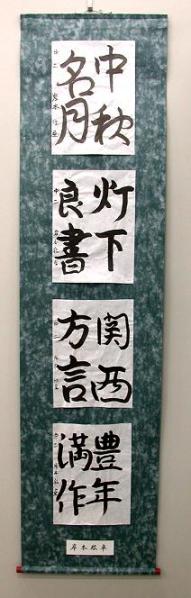 中秋
名月
灯下
良書
関西
方言
豊年
満作